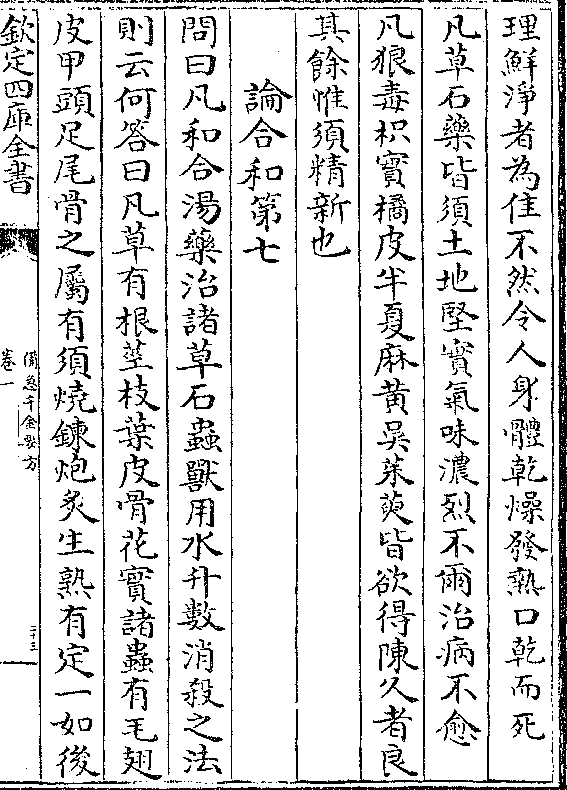 理鮮淨者為佳不然令人身體乾燥發熱口乾而死
凡草石藥皆須土地堅實氣味濃烈不爾治病不愈
凡狼毒枳實橘皮半夏麻黃吳茱萸皆欲得陳久者良
其餘惟須精新也
論合和第七
問曰凡和合湯藥治諸草石蟲獸用水升數消殺之法
則云何答曰凡草有根莖枝葉皮骨花實諸蟲有毛翅
皮甲頭足尾骨之屬有須燒鍊炮炙生熟有定一如後
欽定四庫全書
備急千金要方
卷一
二十三